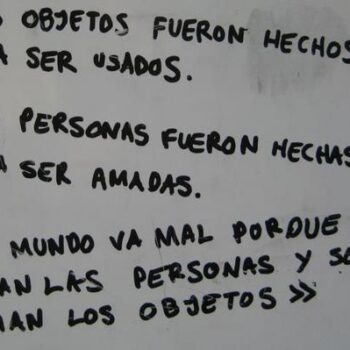 OBJETOS FUERON HECHOS
A SER USADOS.
PERSONAS FUERON HECHAS
A SER AMADAS.
MUNDO VA MAL PORDUE
AN LAS PERSONAS Y SE
MAN LOS OBJETOS >>